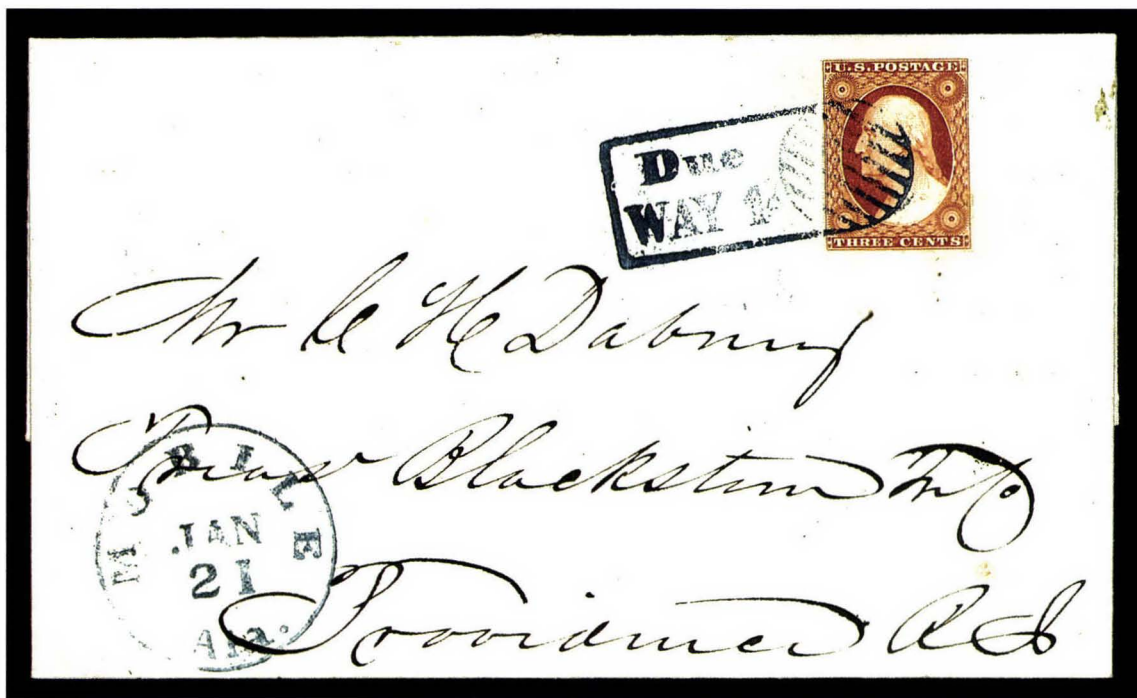 U.S. POSTAGE
THREE CENTS
Due
WAY 1
Mr C H Dabney
Treas Blackstone M Co
Providence R I
MOBILE
JAN
21
Ala.